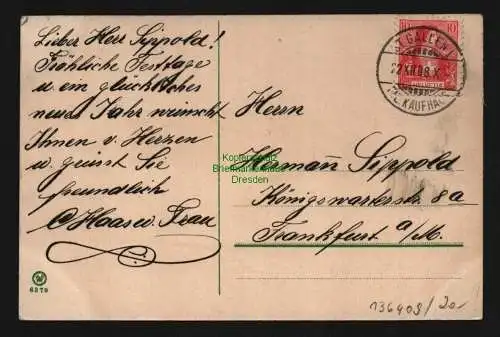 Lieber Herr Sippold!
Fröhliche Festtage
u ein glückliches
neues Jahr wünscht
Ihnen v. Herzen
u. grüsst Sie
freundlich
C Haas u. Frau
6379
10 10
HELVETIA
ST. GALLEN
22.XII.08.X
KAUFHAUS
Herrn
Kopenhagener
Dresden
Hermañ Sippold
Königswarterstr 8a
Frankfurt a/M.
136409/20.-